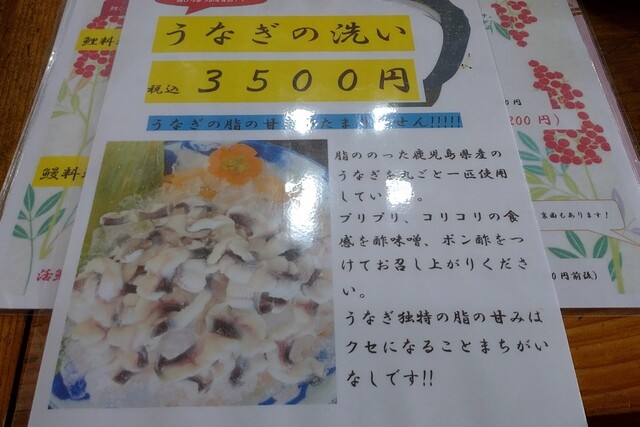 うなぎの洗い
税込 3500円
うなぎの脂の甘 たまり せん!!!!!
脂ののった鹿児島県産の
うなぎを丸ごと一匹使用
してい 。
プリプリ、コリコリの食
感を酢味噌、ポン酢をつ
けてお召し上がりくださ
い。
うなぎ独特の脂の甘みは
クセになることまちがい
なしです!!
鯉料
鰻料
活鰻
円
200円)
裏面もあります!
0円前後)